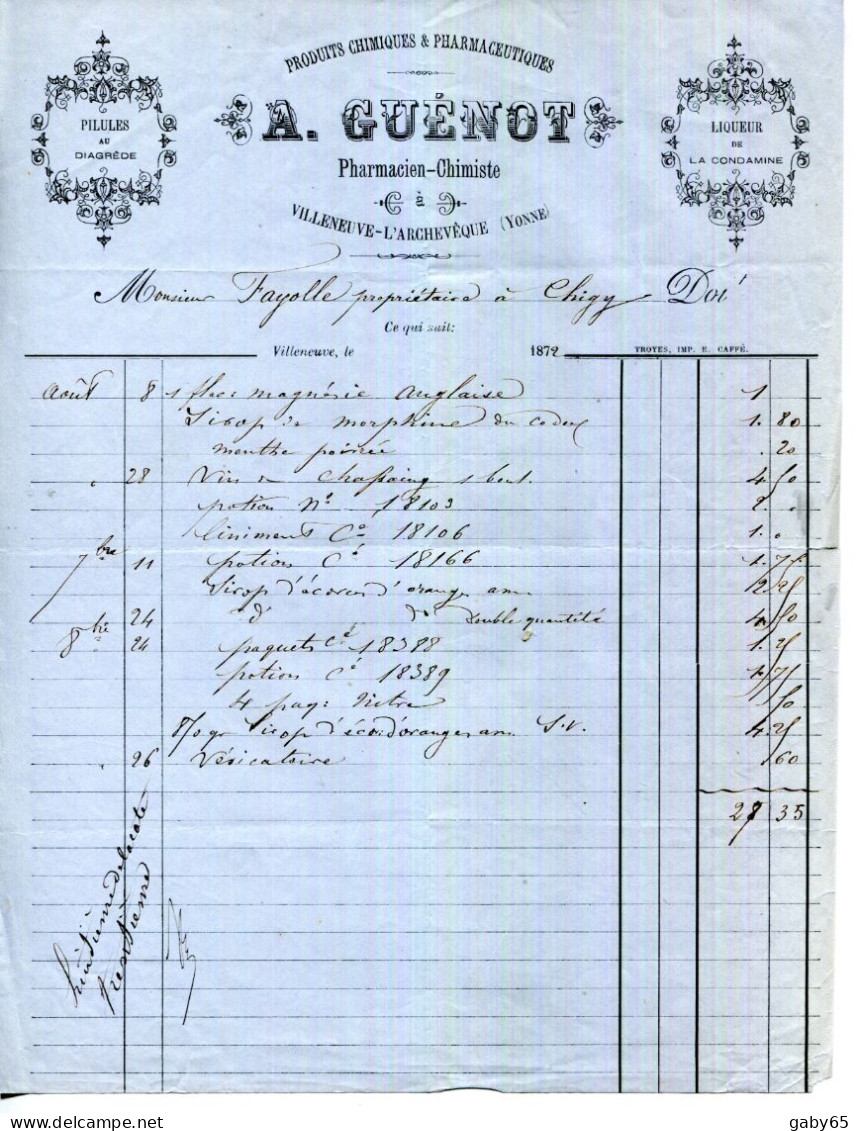 PRODUITS CHIMIQUES & PHARMACEUTIQUES
PILULES
AU
DIAGRÈDE
A. GUÉNOT
LIQUEUR
DE
LA CONDAMINE
Pharmacien-Chimiste
à
VILLENEUVE-L'ARCHEVÊQUE (YONNE)
Monsieur Fayolle propriétaire à Chigy Doit
Ce qui suit:
Villeneuve, le 1872 TROYES, IMP. E. CAFFÉ.
Août 8 1 flac: magnésie anglaise 1
Sirop de morphine du codex 1. 80
menthe poivrée . 20
" 28 Vin de Chassaing 1 bout. 4. 50
potion No 18103 2. "
liniment Co 18106 1. "
7bre 11 potion Cé 18166 1. 75
Sirop d'écorces d'oranges am 2. 25
24 do do Double quantité 4 50
8bre 24 paquets Cé 18388 1. 25
potion Cé 18389 1. 75
4 paq: Nitre 50
850 gr Sirop d'éco: d'oranges am. S.V. 4. 25
" 26 Vésicatoire 60
27 35
trente